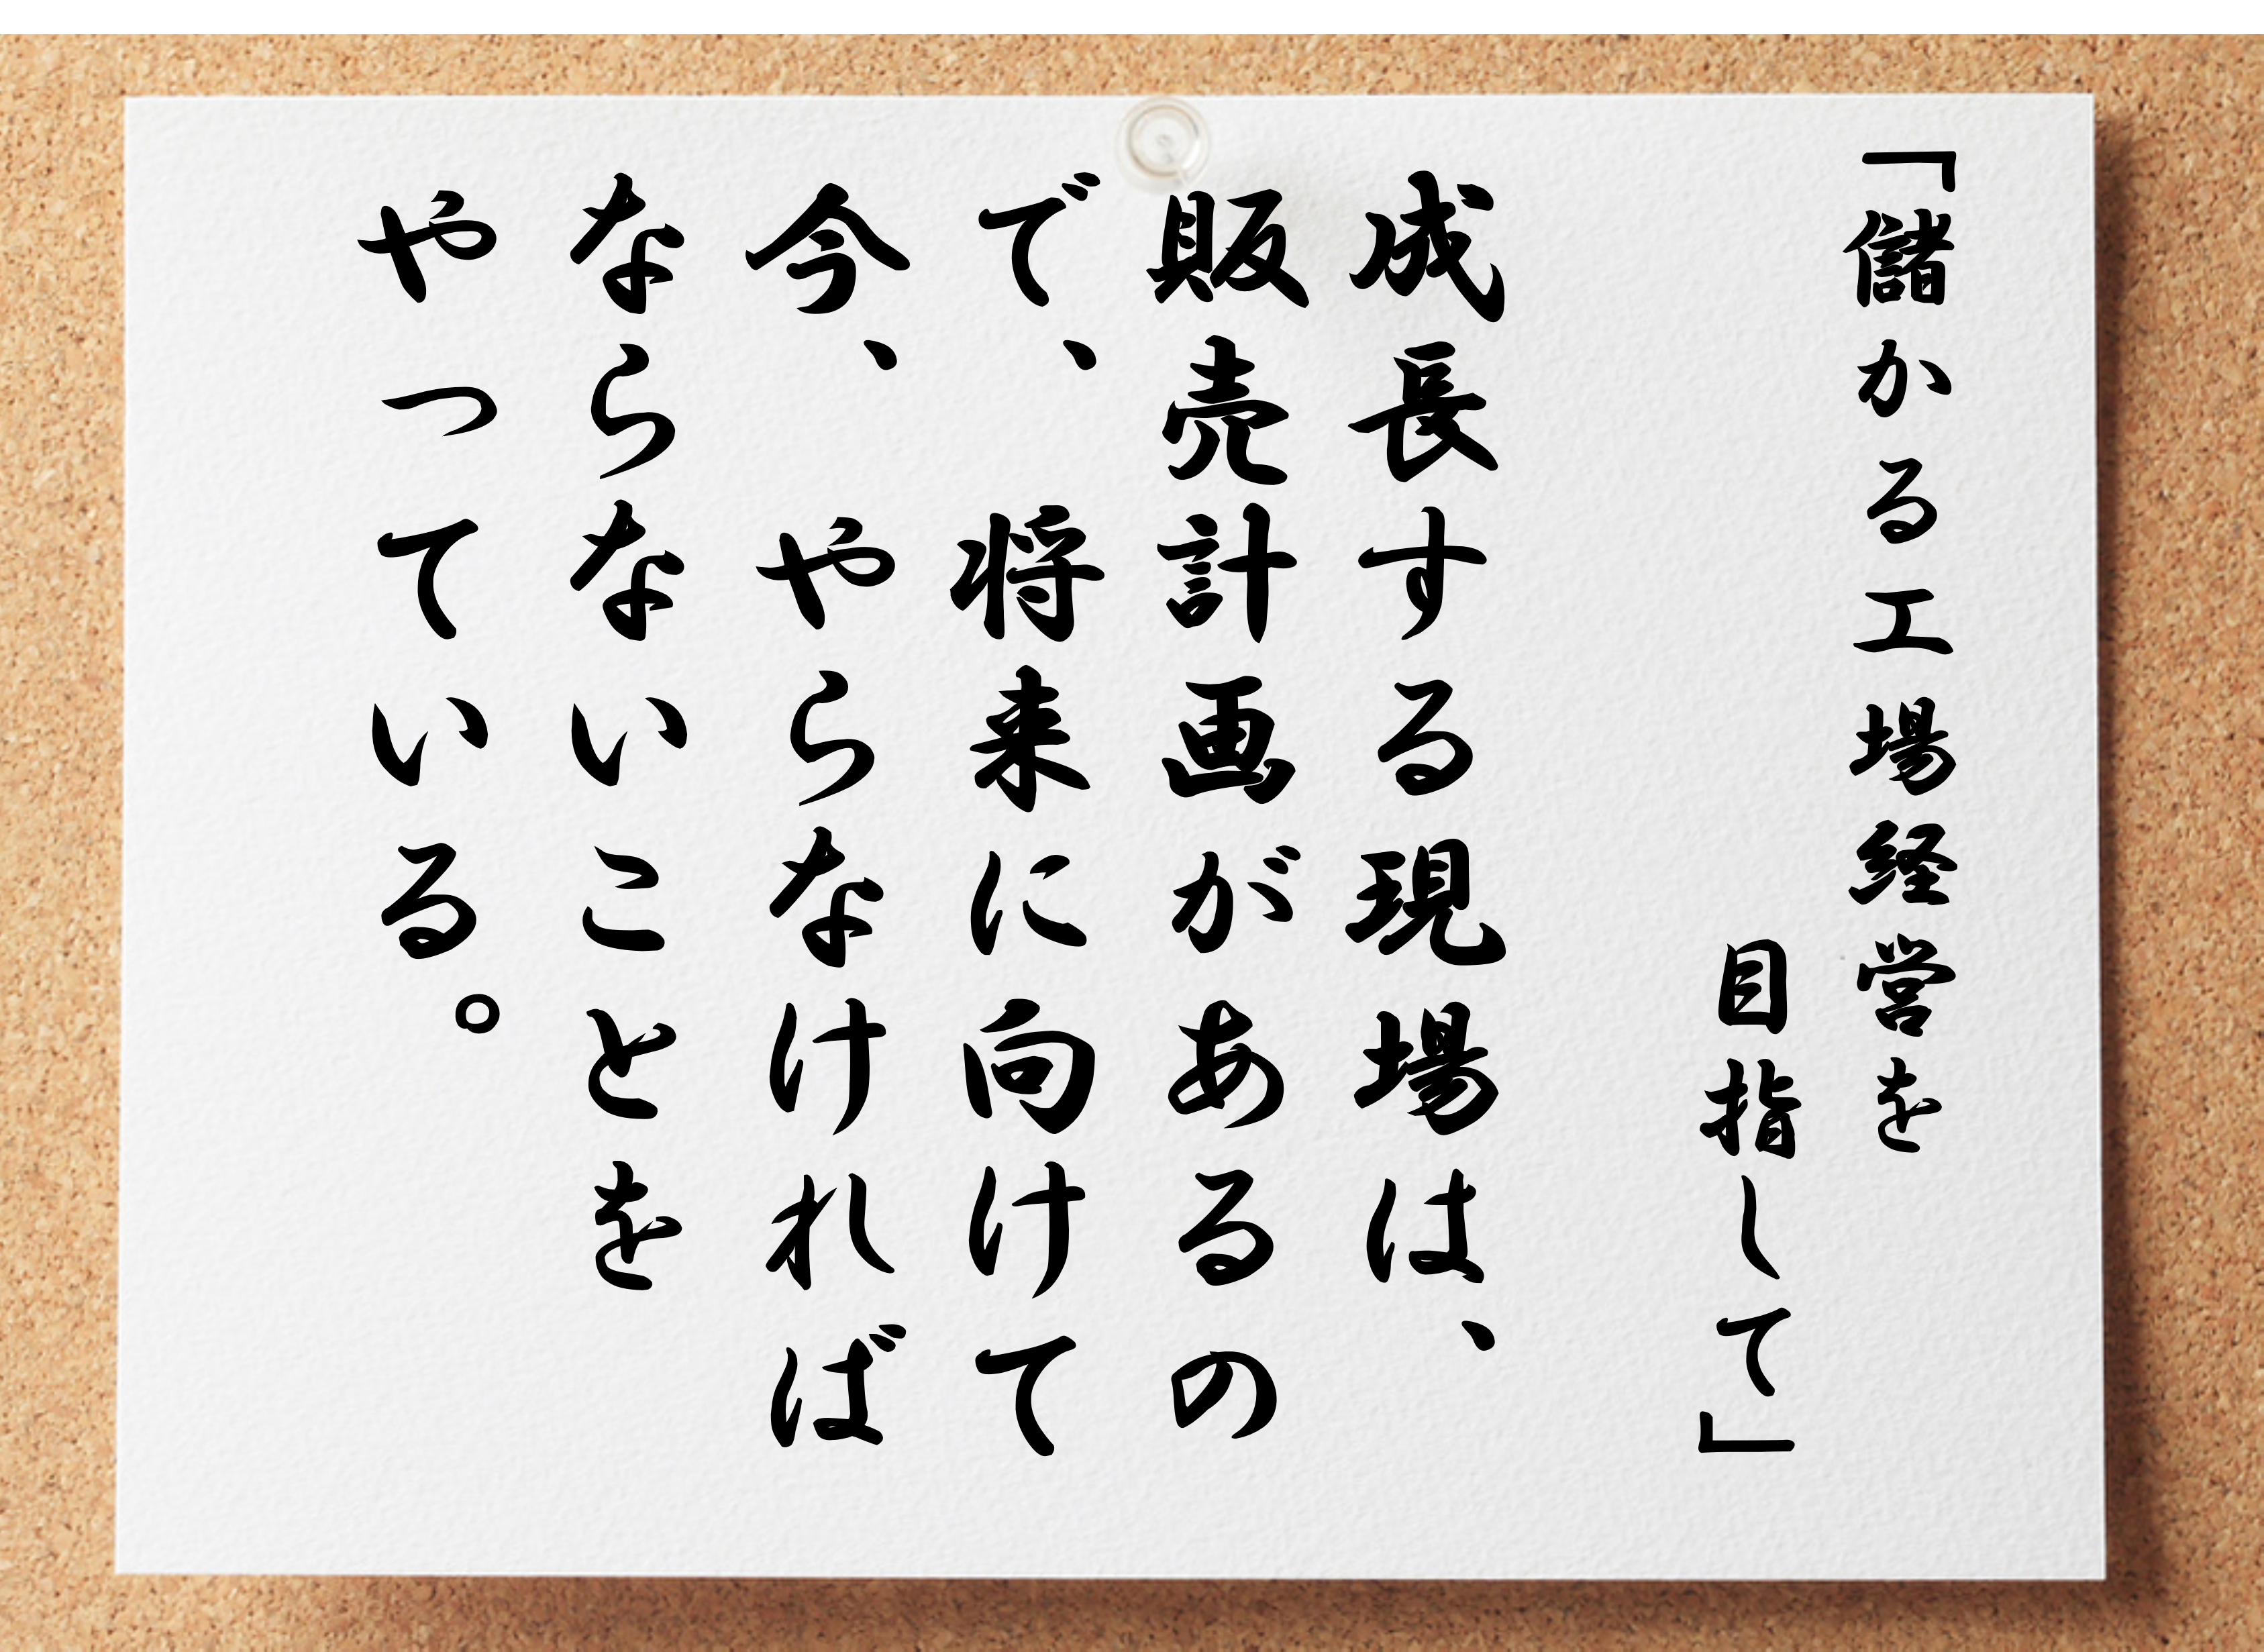 「儲かる工場経営を
目指して」
成長する現場は、
販売計画があるの
で、将来に向けて
今、やらなければ
ならないことを
やっている。